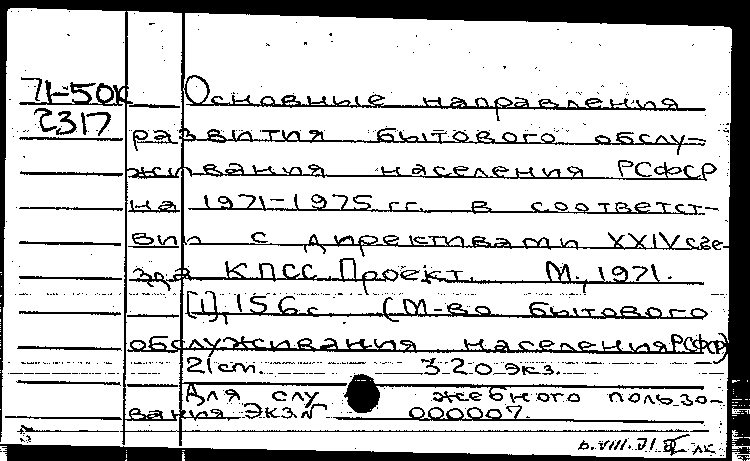 71-50к Основные направления
2317 развития бытового обслу-
живания населения РСФСР
на 1971-1975 гг. в соответст-
вии с директивами XXIV съе-
зда КПСС. Проект. М., 1971.
[1], 156 с. (М-во бытового
обслуживания населения РСФСР)
21 cm. 320 экз.
Для служебного пользо-
вания. Экз № 000007.